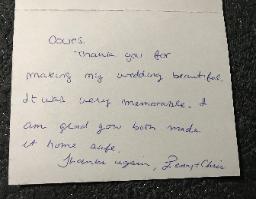 Thank you for
making my wedding beautiful.
It was very memorable. I
am glad you both made
it home safe.
Thanks again, + Chris